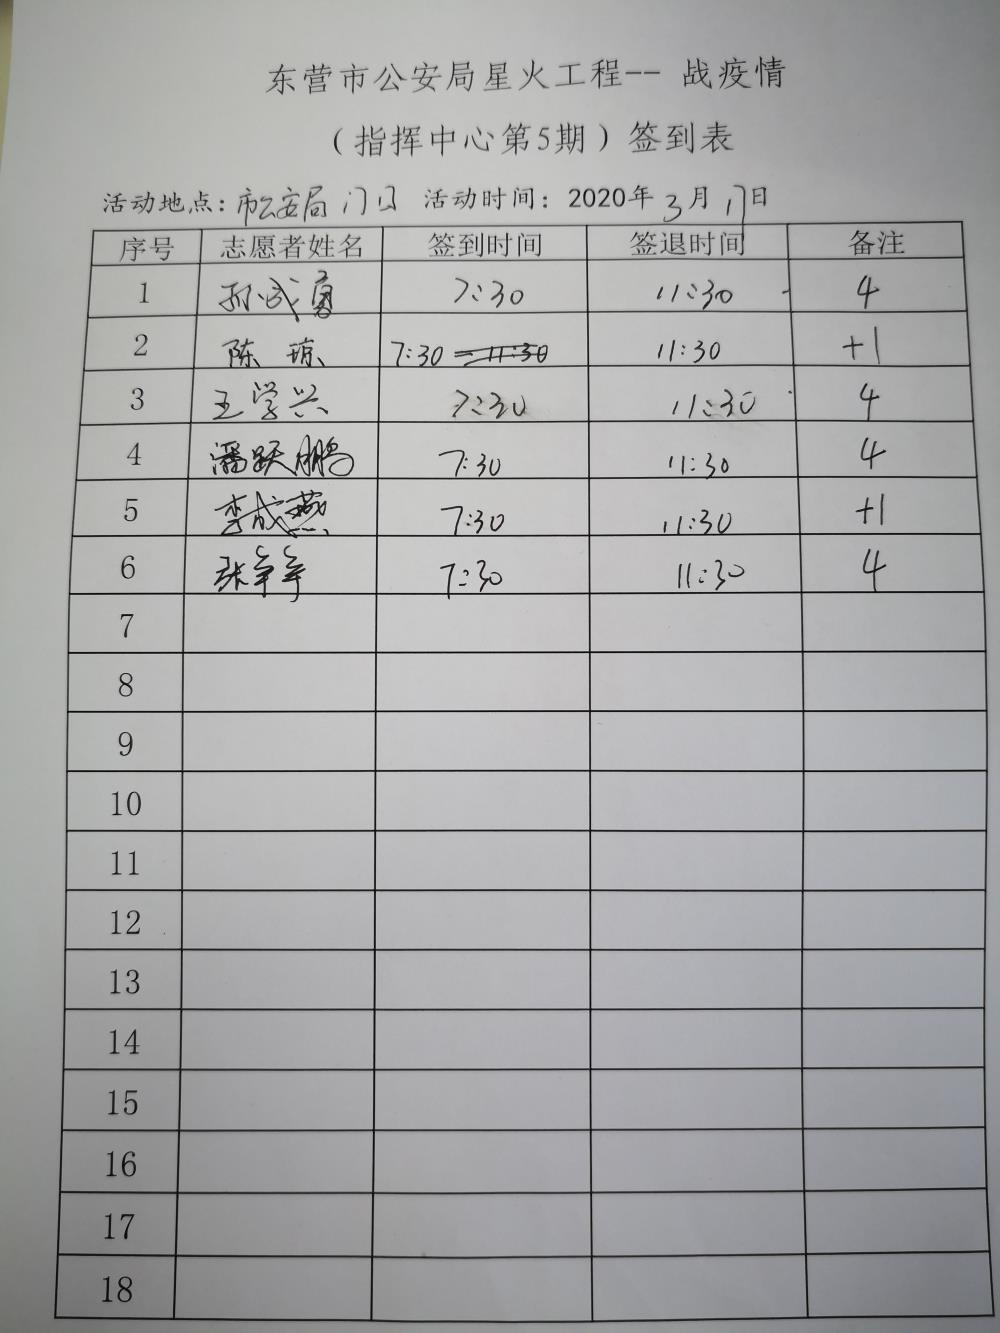 东营市公安局星火工程-- 战疫情
（指挥中心第5期）签到表
活动地点：市公安局门口 活动时间：2020年3月17日
序号 志愿者姓名 签到时间 签退时间 备注
1 孙成勇 7:30 11:30 4
2 陈琼 7:30 —11:30 11:30 +1
3 王学兴 7:30 11:30 4
4 潘跃鹏 7:30 11:30 4
5 李成燕 7:30 11:30 +1
6 张争争 7:30 11:30 4
7
8
9
10
11
12
13
14
15
16
17
18